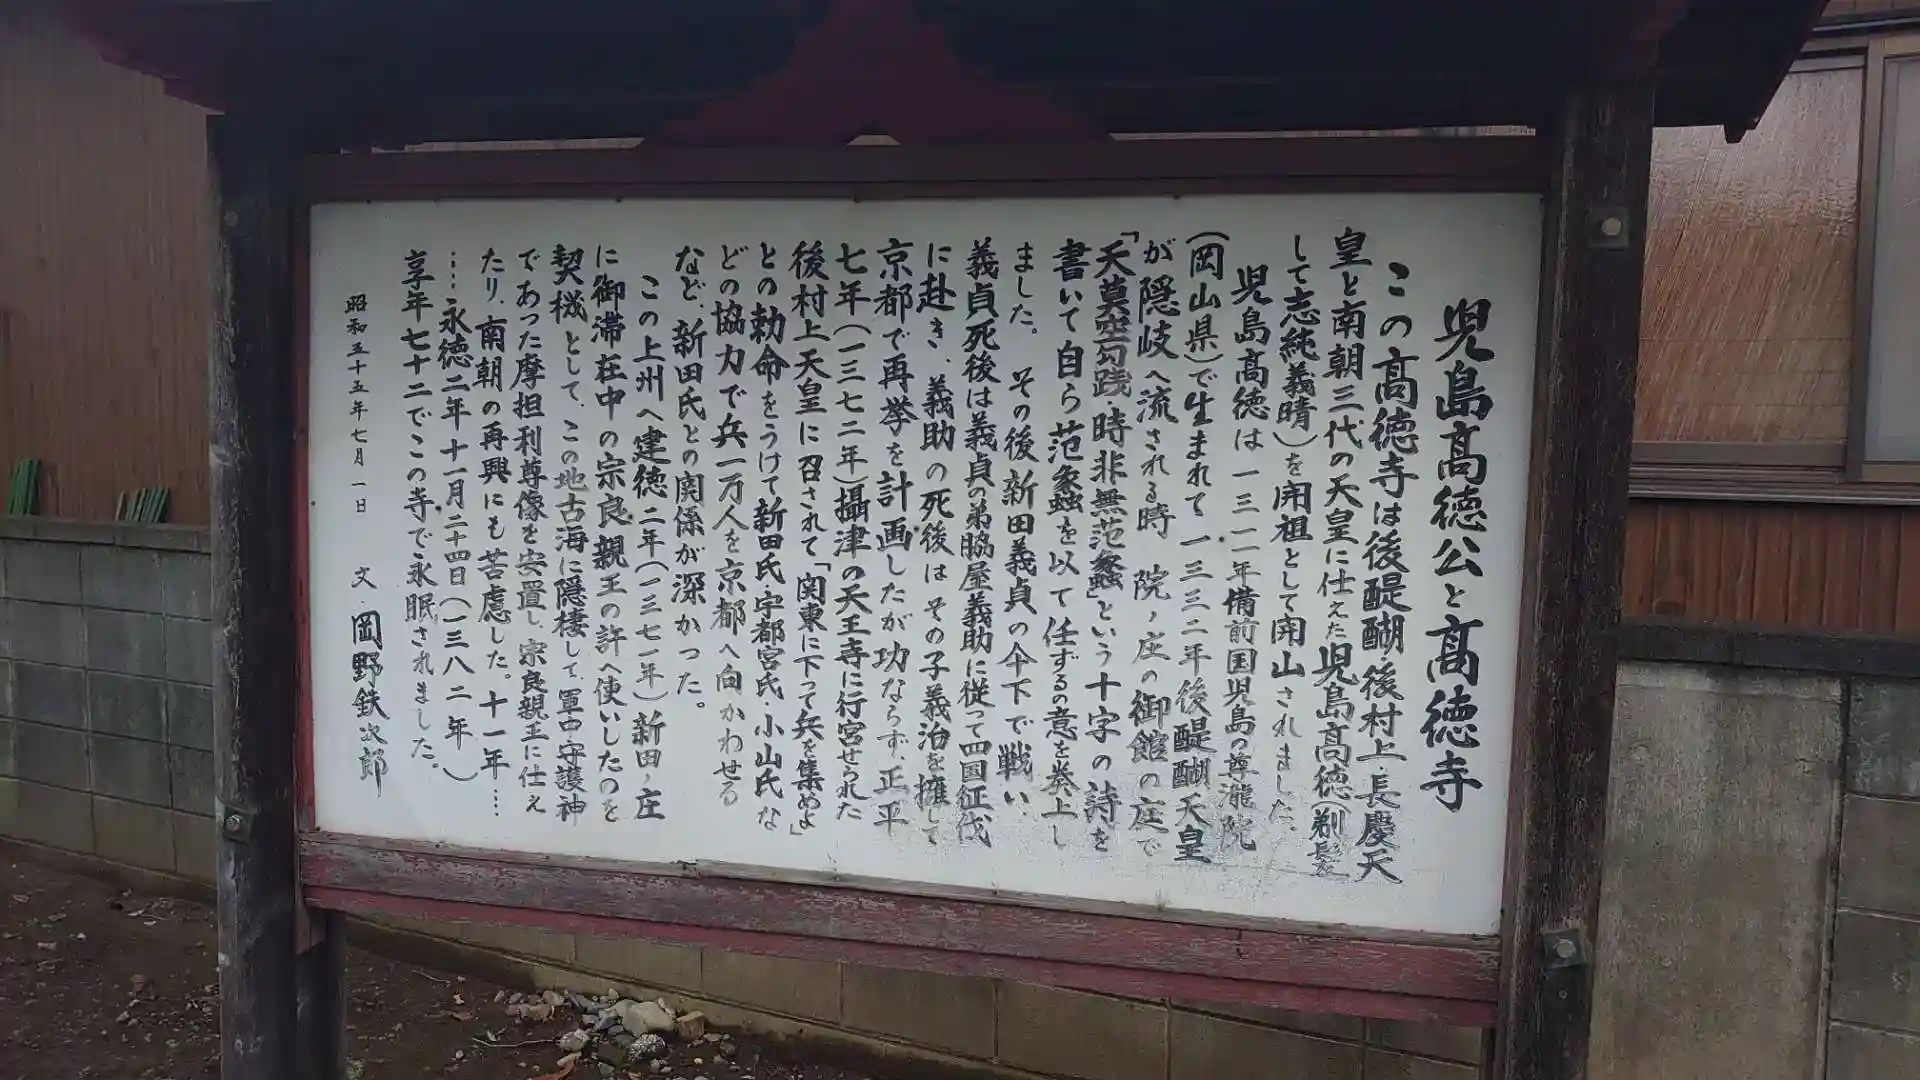 児島高徳公と高徳寺
この高徳寺は後醍醐・後村上・長慶天
皇と南朝三代の天皇に仕えた児島高徳(剃髪
して志純義晴)を開祖として開山されました。
児島高徳は一三一一年備前国児島の尊瀧院
(岡山県)で生まれて一三三二年後醍醐天皇
が隠岐へ流される時 院ノ庄の御館の庭で
「天莫空勾践・時非無范蠡」という十字の詩を
書いて自ら范蠡を以て任ずるの意を奏上し
ました。その後新田義貞の傘下で戦い、
義貞死後は義貞の弟脇屋義助に従って四国征伐
に赴き、義助の死後はその子義治を擁して
京都で再挙を計画したが功ならず、正平
七年(一三七二年)攝津の天王寺に行宮せられた
後村上天皇に召されて「関東に下って兵を集めよ」
との勅命をうけて新田氏・宇都宮氏・小山氏な
どの協力で兵一万人を京都へ向かわせる
など、新田氏との関係が深かった。
この上州へ建徳二年(一三七一年)新田ノ庄
に御滞在中の宗良親王の許へ使いしたのを
契機として、この地古海に隠棲して、軍中守護神
であった摩担利尊像を安置し、宗良親王に仕え
たり、南朝の再興にも苦慮した。十一年……
……永徳二年十一月二十四日(一三八二年)
享年七十二でこの寺で永眠されました。
昭和五十五年七月一日 文 岡野鉄次郎